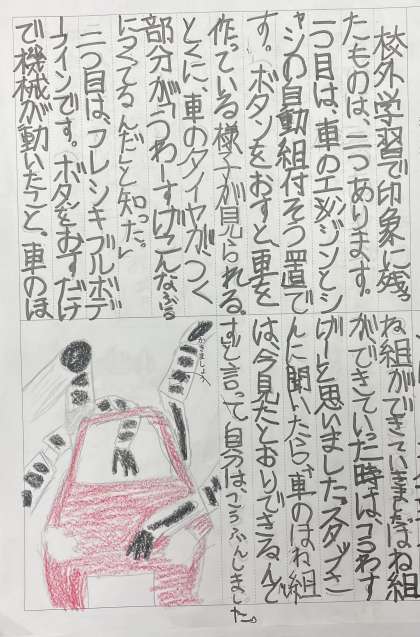 校外学習で印象に残っ
たものは、二つあります。
一つ目は、車のエンジンとシ
ャシの自動組付そう置で
す。ボタンをおすと、車を
作っている様子が見られる。
とくに、車のタイヤがつく
部分が「うわーすげこんなふう
につくてるんだ」と知った。
二つ目は、フレシキブルボデ
ーラインです。ボタンをおすだけ
で機械が動いたこと。車のほ
ね組ができていきました。ほね組
ができていった時は、「うわす
げー」と思いました。スタッフさ
んに聞いたら、「車のほね組
は、今見たとおりできるんで
す」と言って、自分は、こうふんしました。
かきましょう